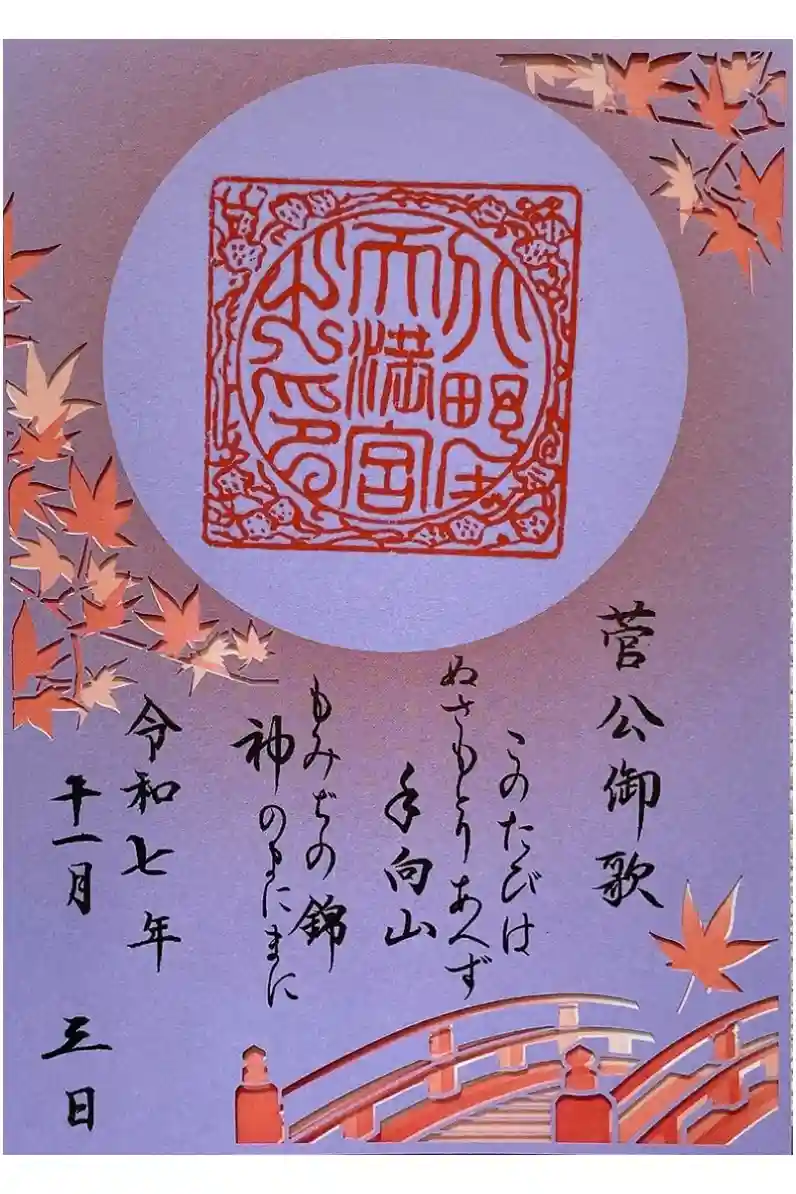 天満宮
菅公御歌
このたびは
ぬさもとりあへず
手向山
もみぢの錦
神のまにまに
令和七年
十一月 三日